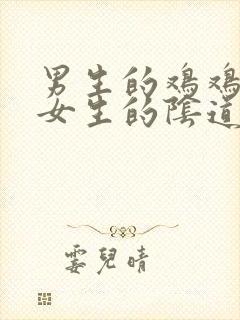 男生的鸡鸡
女生的陰道
霎兒晴